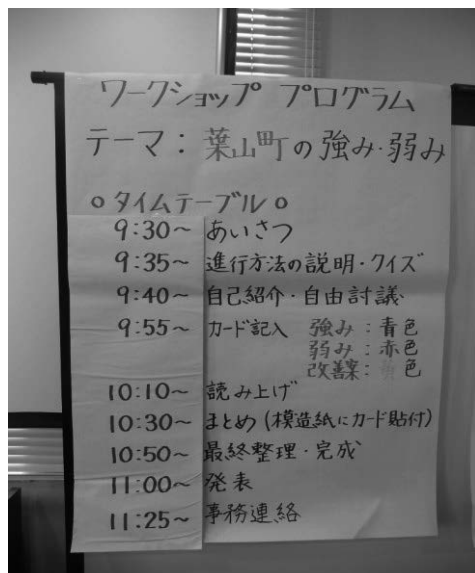 ワークショップ プログラム
テーマ：葉山町の強み・弱み
○タイムテーブル○
9:30～ あいさつ
9:35～ 進行方法の説明・クイズ
9:40～ 自己紹介・自由討議
9:55～ カード記入 強み：青色
弱み：赤色
改善案： 色
10:10～ 読み上げ
10:30～ まとめ(模造紙にカード貼付)
10:50～ 最終整理・完成
11:00～ 発表
11:25～ 事務連絡